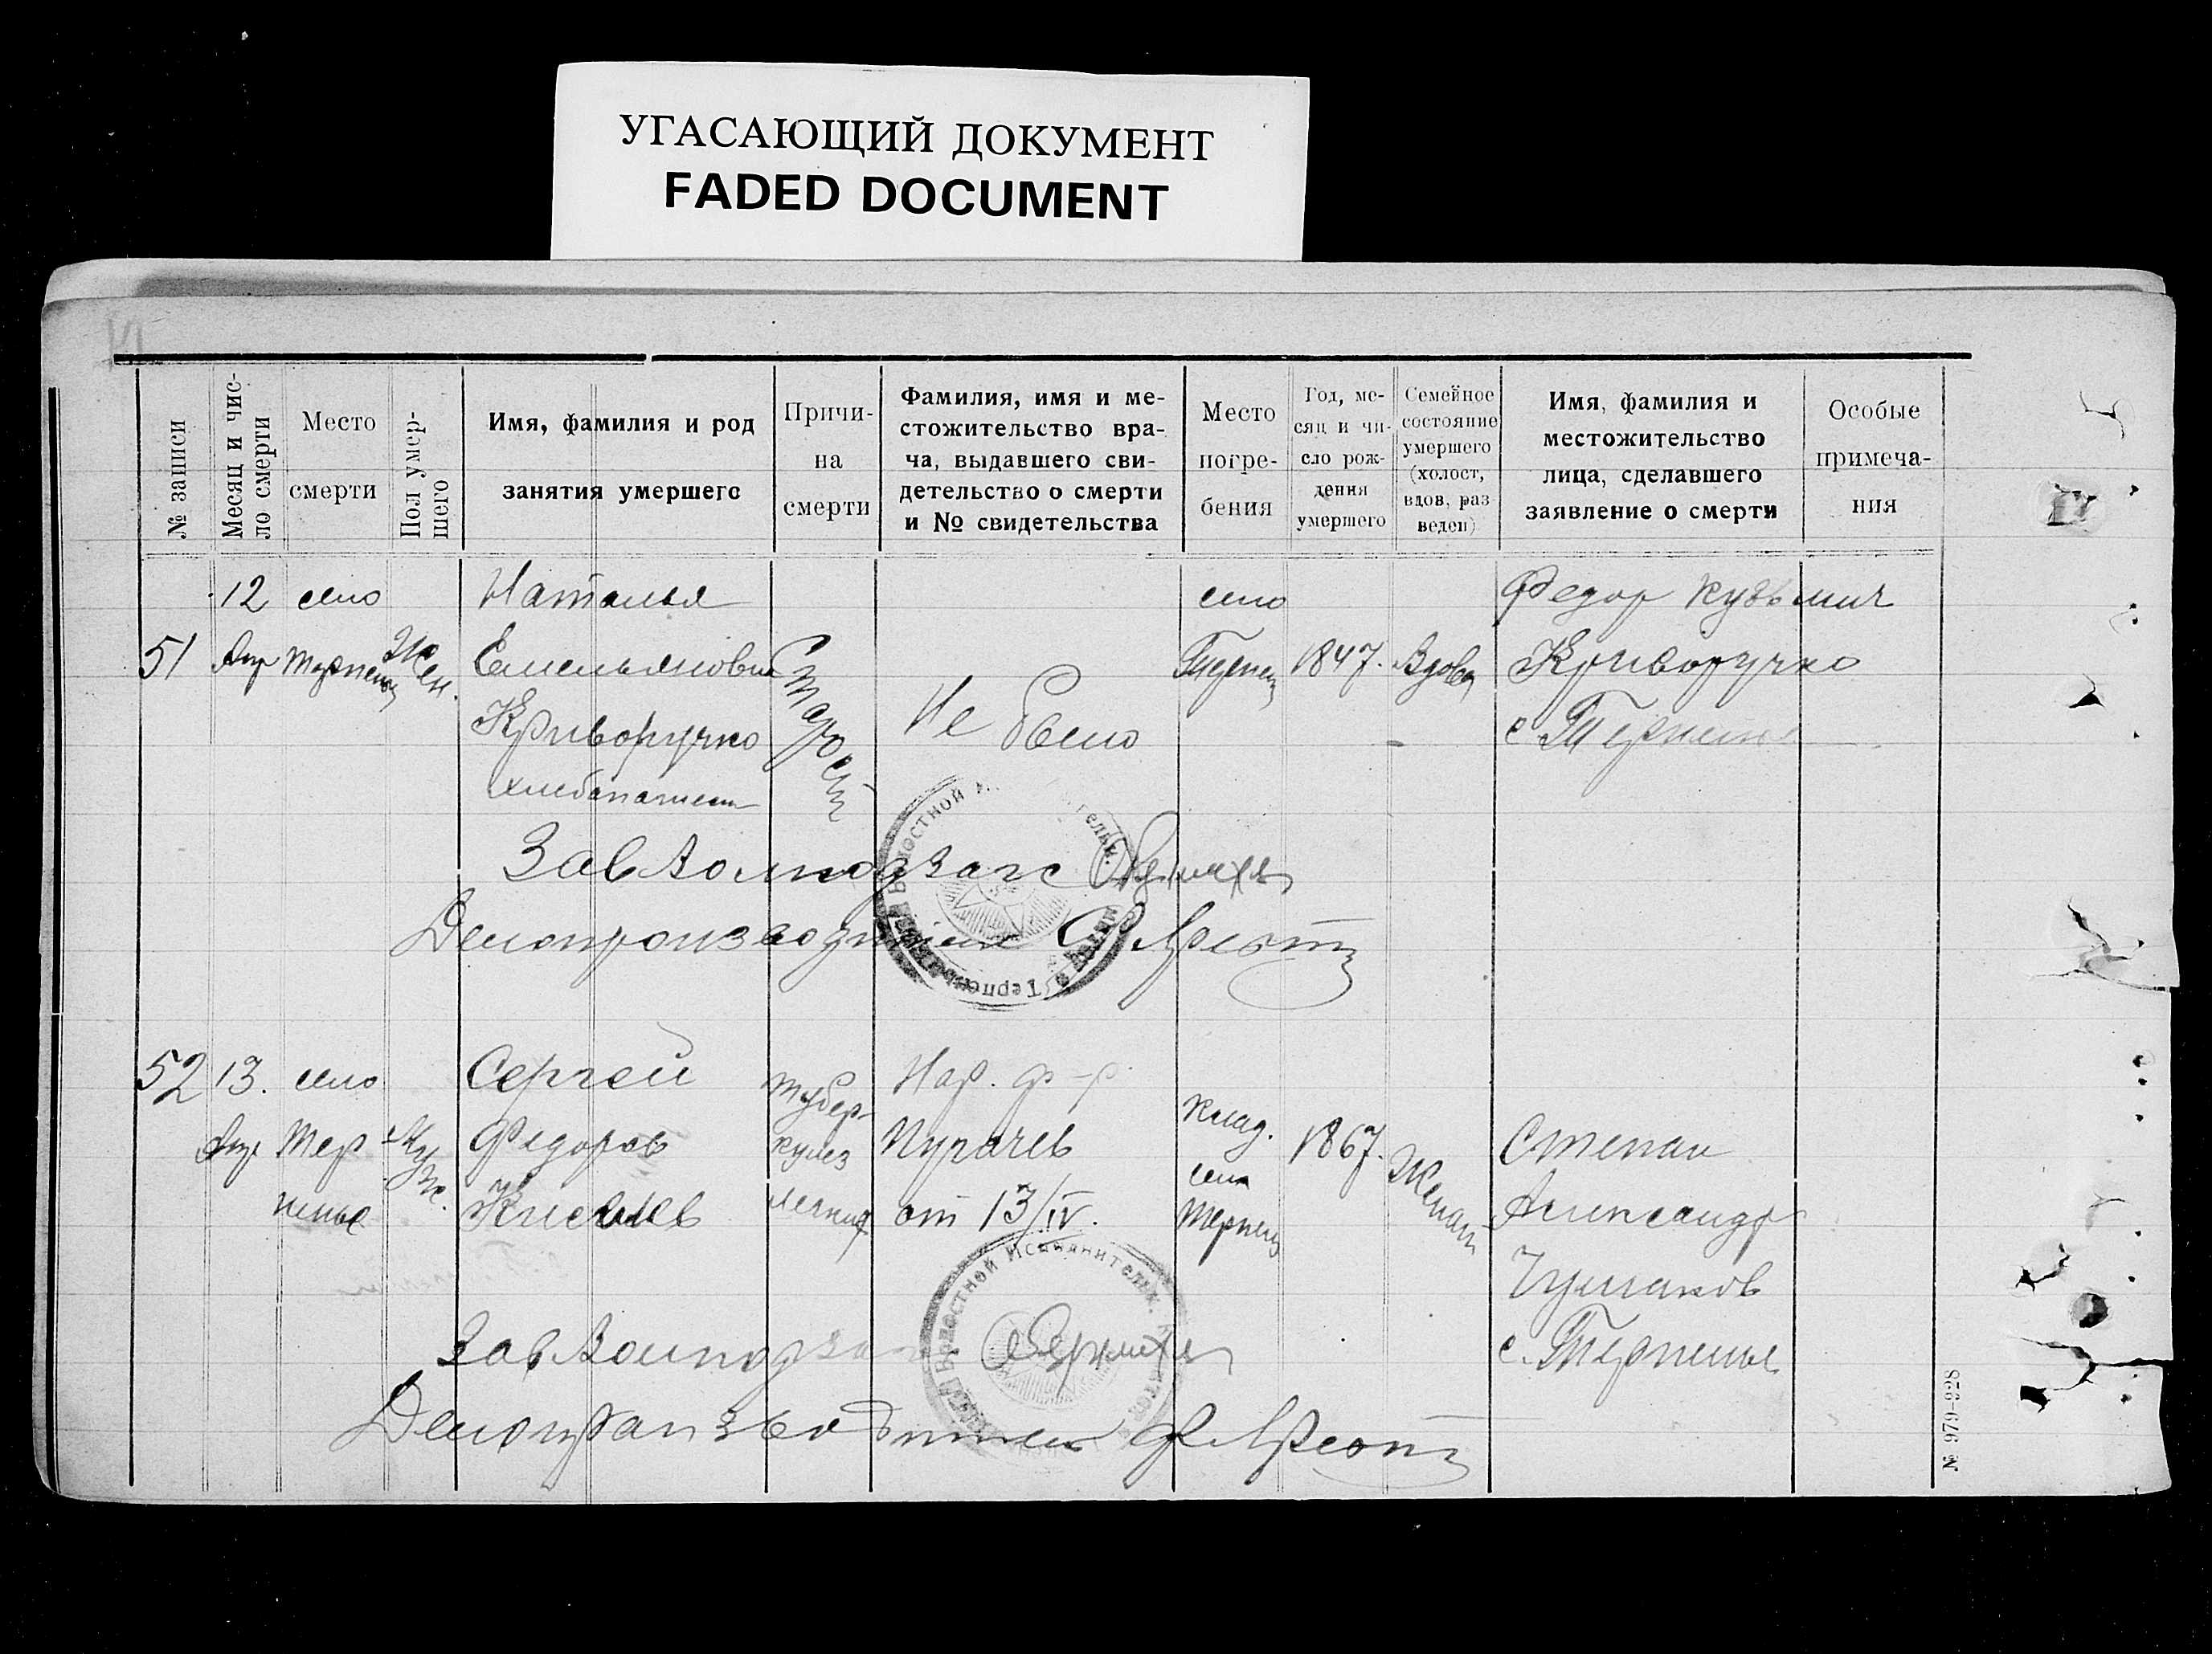 УГАСАЮЩИЙ ДОКУМЕНТ
FADED DOCUMENT
№ записи
Месяц и чис-
ло смерти
Место
смерти
Пол умер-
шего
Имя, фамилия и род
занятия умершего
Причи-
на
смерти
Фамилия, имя и ме-
стожительство вра-
ча, выдавшего сви-
детельство о смерти
и № свидетельства
Место
погре-
бения
Год, ме-
сяц и чи-
сло рож-
дения
умершего
Семейное
состояние
умершего
(холост,
вдов, раз-
веден)
Имя, фамилия и
местожительство
лица, сделавшего
заявление о смерти
Особые
примеча-
ния
51
12
Апр
село
Терпенье
Жен.
Наталья
Емельяновна
Криворучко
хлебопашец
Старость
Не было
село
1847.
Вдова
Федор Кузьмич
Криворучко
с. Терпенье
Завволподзагс
Делопроизводитель
52
13.
Апр
село
Тер
пенье
Муж.
Сергей
Федоров
Тубер-
кулез
легких
Нар. ф-р.
Пугачев
от 13/IV.
Клад.
села
Терпень
1867.
Женат
Степан
Александр
Чумаков
с. Терпенье
Завволподзаг
Делопроизводитель
Волостной Исполнительн.
№ 979-928